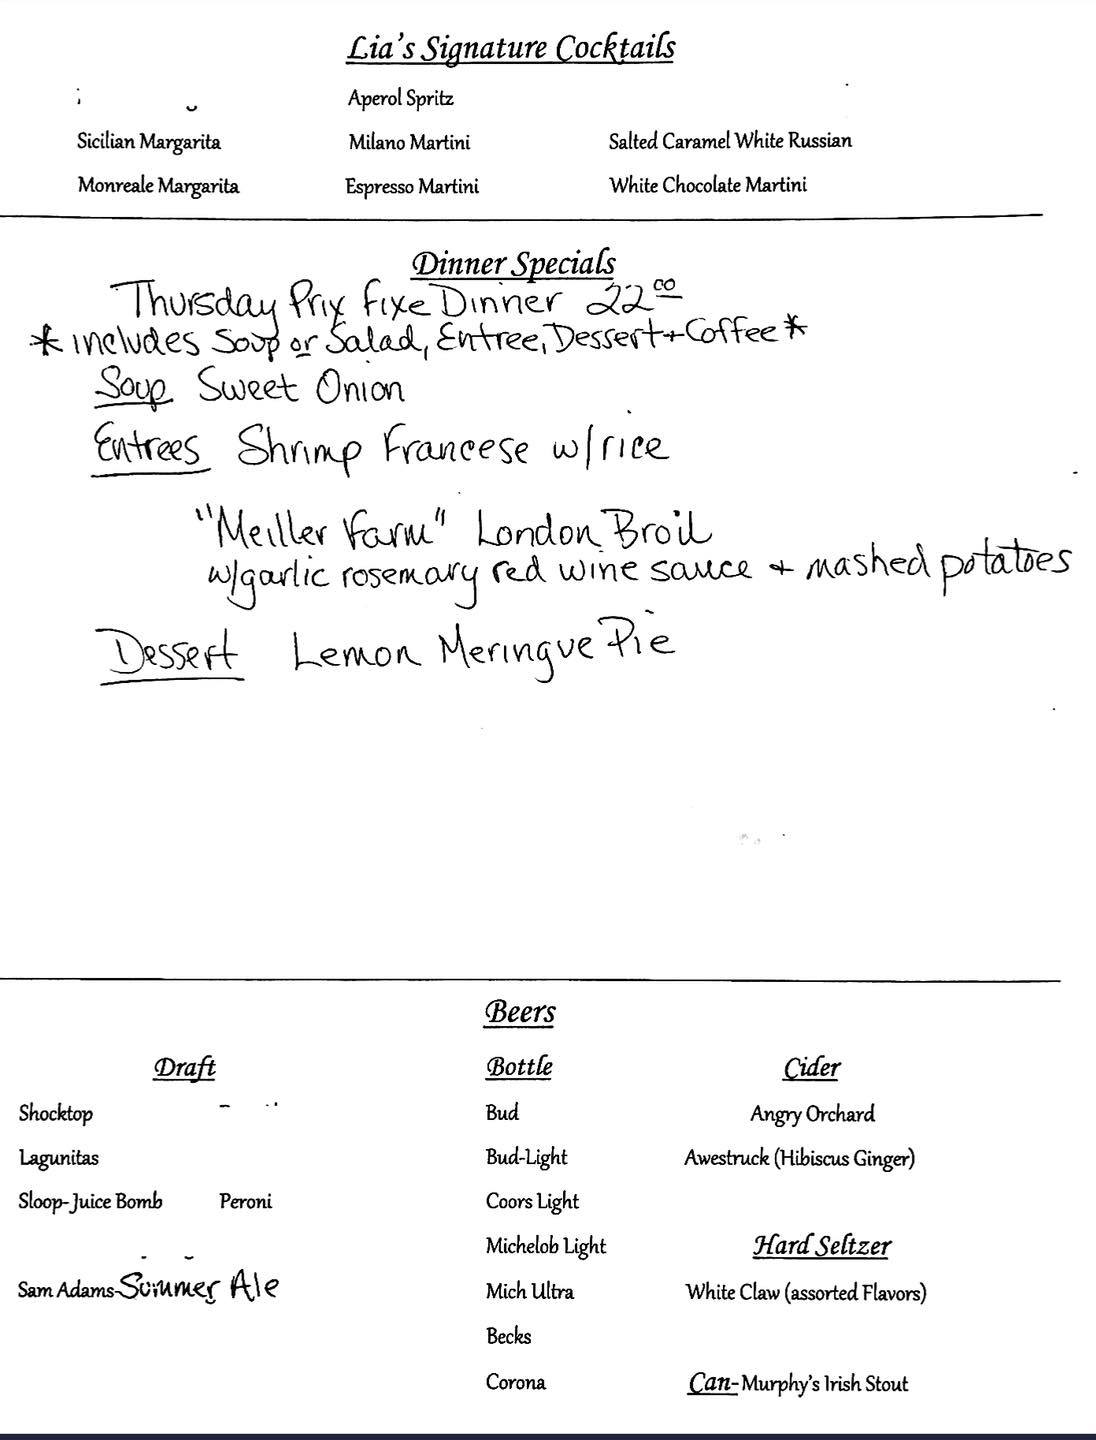 Lia's Signature Cocktails
Aperol Spritz
Sicilian Margarita Milano Martini Salted Caramel White Russian
Monreale Margarita Espresso Martini White Chocolate Martini
Dinner Specials
Thursday Prix Fixe Dinner 22⁰⁰
*includes Soup or Salad, Entree, Dessert + Coffee*
Soup Sweet Onion
Entrees Shrimp Francese w/rice
"Meiller Farm" London Broil
w/garlic rosemary red wine sauce + mashed potatoes
Dessert Lemon Meringue Pie
Beers
Draft Bottle Cider
Shocktop Bud Angry Orchard
Lagunitas Bud-Light Awestruck (Hibiscus Ginger)
Sloop-Juice Bomb Peroni Coors Light
Michelob Light Hard Seltzer
Sam Adams-Summer Ale Mich Ultra White Claw (assorted Flavors)
Becks
Corona Can-Murphy's Irish Stout